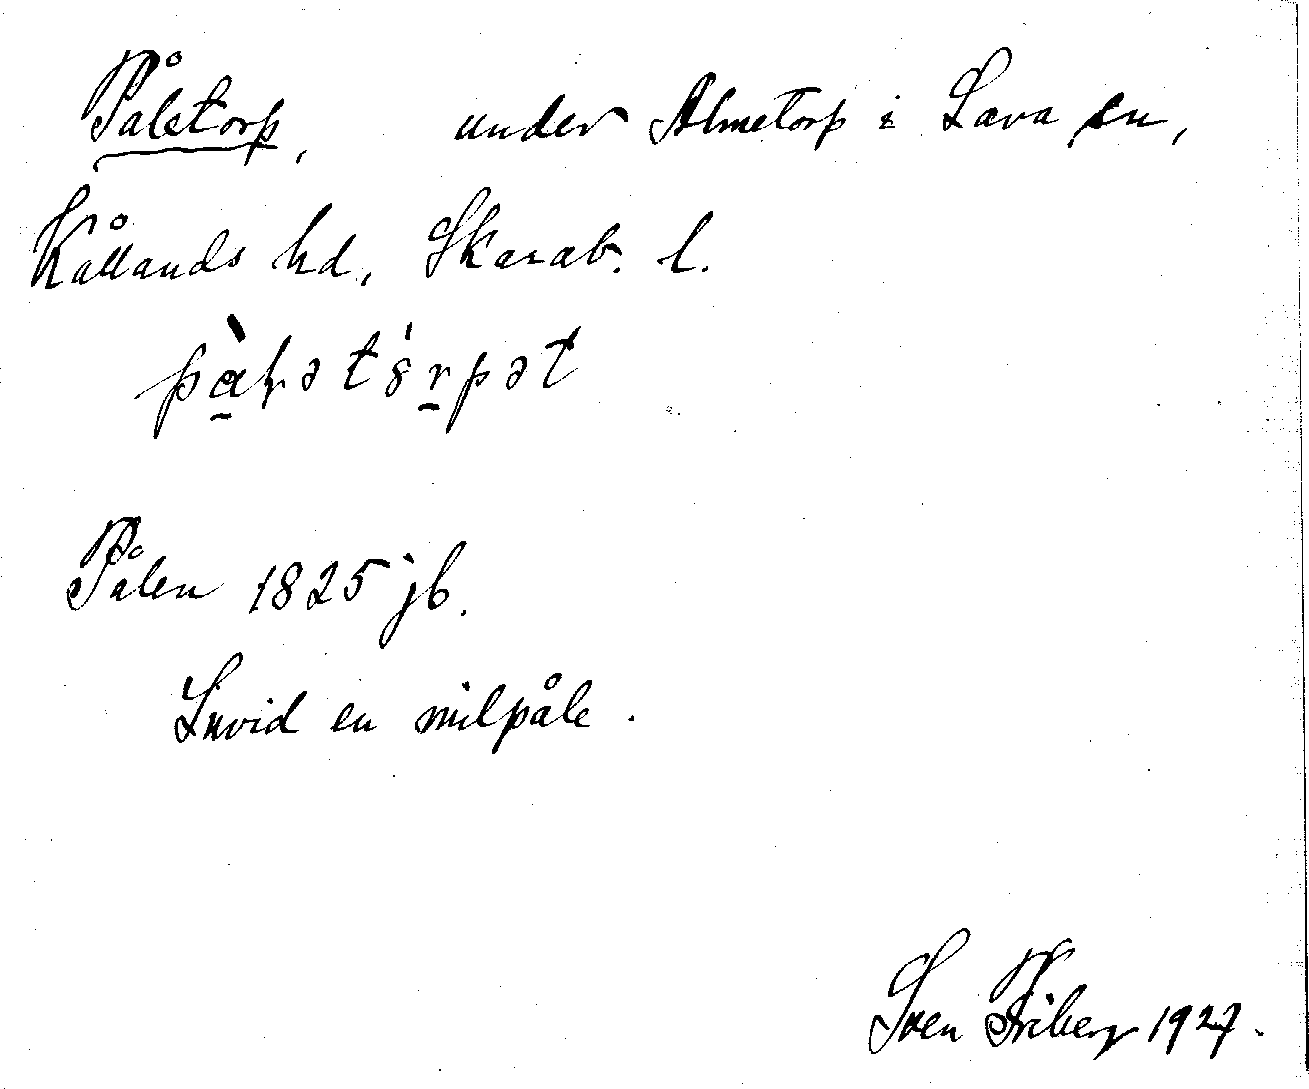 Påletorp, under Almetorp i Lava sn,
Kållands hd, Skarab. l.
Pålen 1825 jb.
Invid en milpåle.
Sven Friberg 1927.